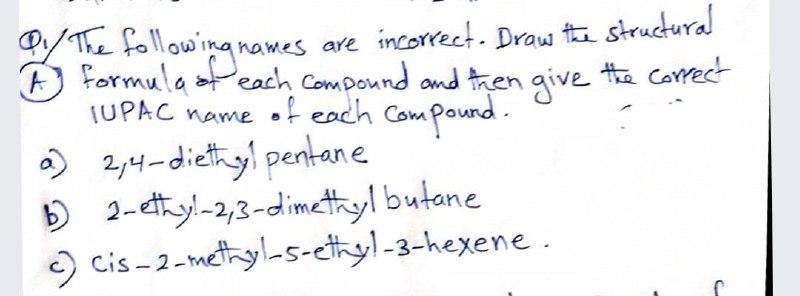 Q1/ The following names are incorrect. Draw the structural
A) formula of each compound and then give the correct
IUPAC name of each compound.
a) 2,4-diethyl pentane
b) 2-ethyl-2,3-dimethyl butane
c) cis-2-methyl-5-ethyl-3-hexene.